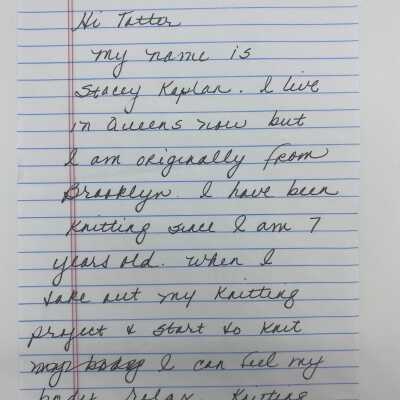 Hi Tatter
my name is
Stacey Kaplan. I live
in Queens now but
I am originally from
Brooklyn. I have been
Knitting since I am 7
years old. When I
take out my Knitting
project & start to Knit
I can feel my
body relax. Knitting